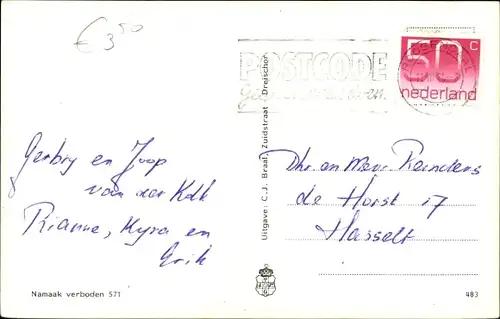 € 3,50
POSTCODE
50 c
nederland
Gerbry en Joop
van der Kolk
Rianne, Kyra en
Erik
Uitgave: C. J. Braal, Zuidstraat - Dreischor
Dhr. en Mevr Reinders
de Horst 17
Hasselt
Namaak verboden 571
483